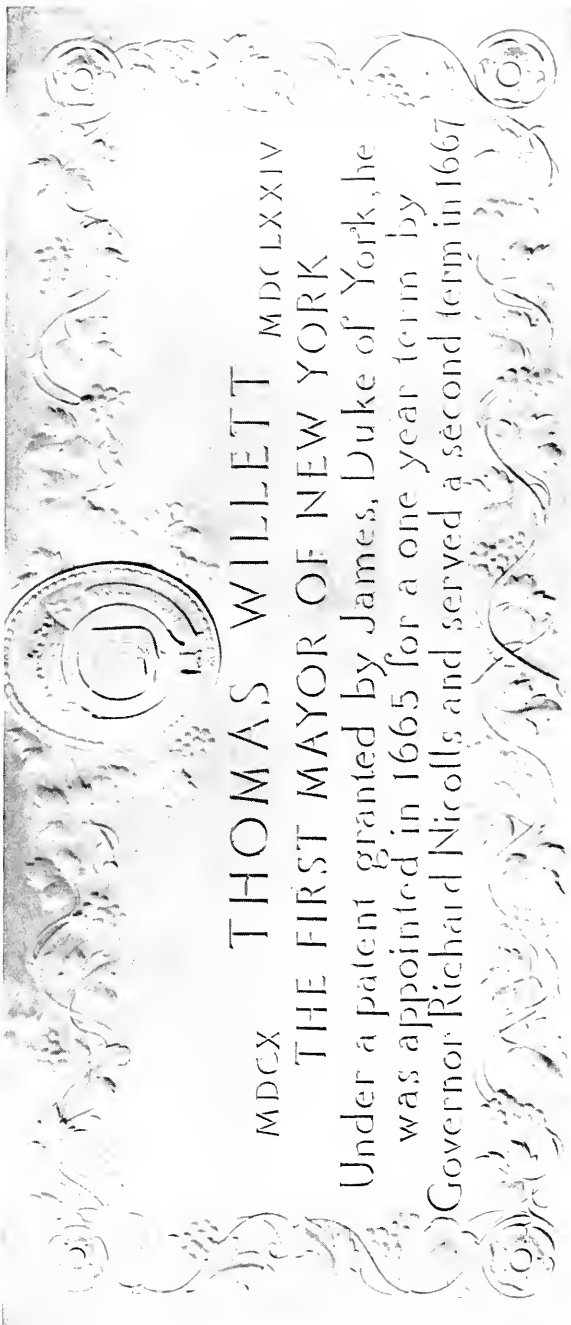 MDCX THOMAS WILLETT MDCLXXIV
THE FIRST MAYOR OF NEW YORK
Under a patent granted by James, Duke of York, he
was appointed in 1665 for a one year term by
Governor Richard Nicolls and served a second term in 1667